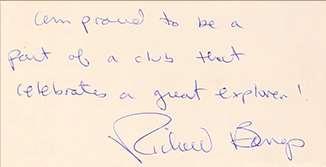 am proud to be a
part of a club that
celebrates a great explorer!
Richard Bangs